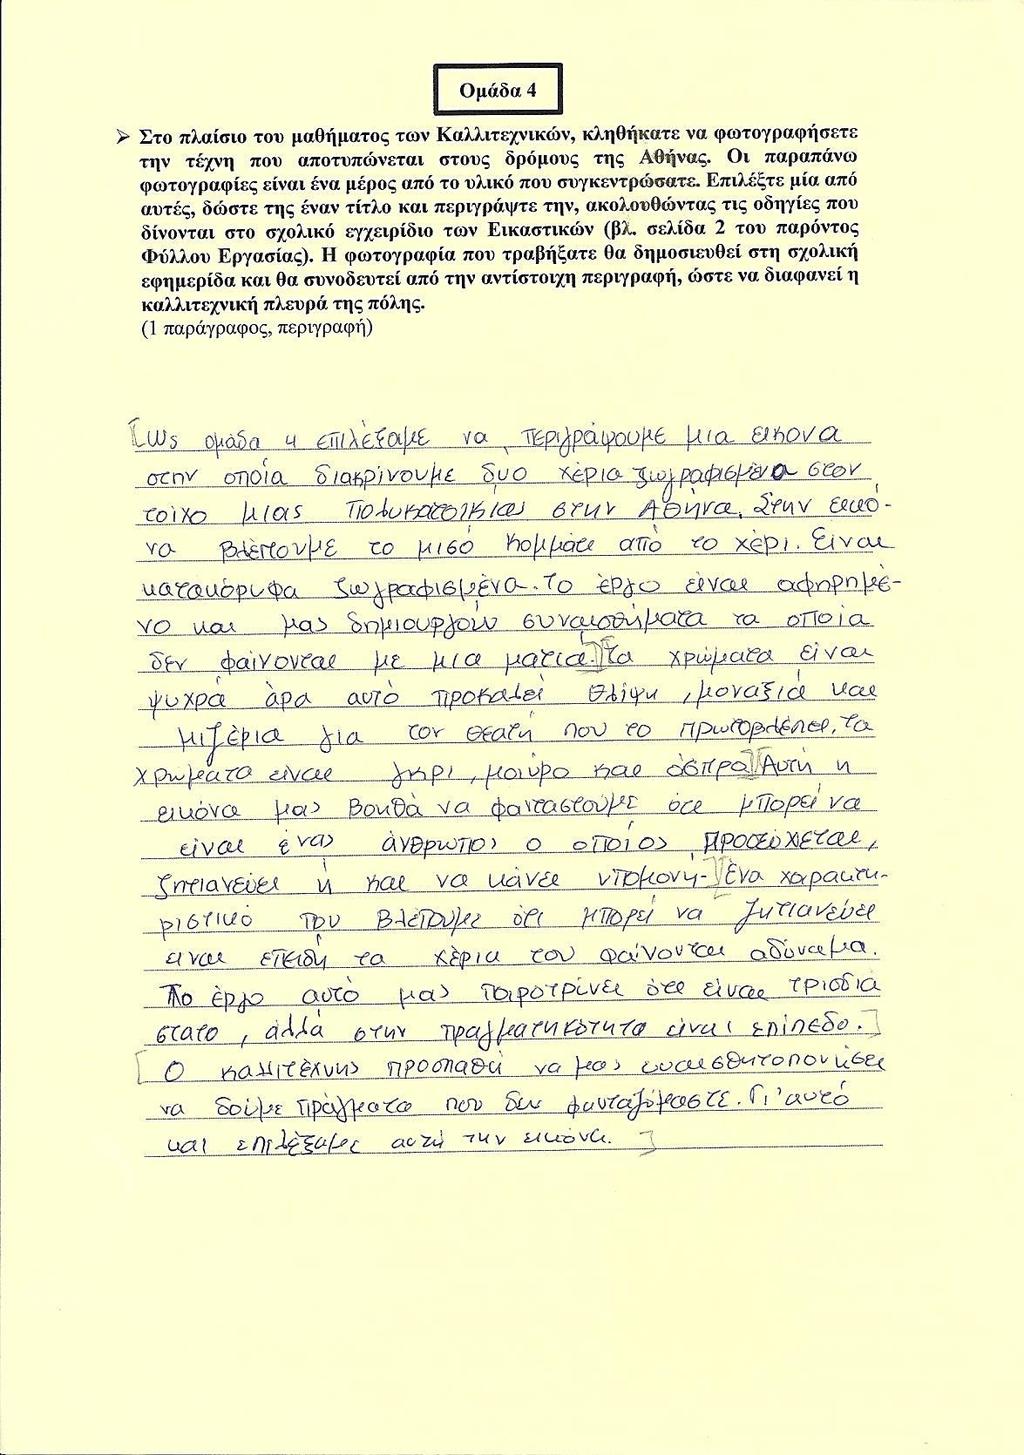 Ομάδα 4
➢ Στο πλαίσιο του μαθήματος των Καλλιτεχνικών, κληθήκατε να φωτογραφήσετε
την τέχνη που αποτυπώνεται στους δρόμους της Αθήνας. Οι παραπάνω
φωτογραφίες είναι ένα μέρος από το υλικό που συγκεντρώσατε. Επιλέξτε μία από
αυτές, δώστε της έναν τίτλο και περιγράψτε την, ακολουθώντας τις οδηγίες που
δίνονται στο σχολικό εγχειρίδιο των Εικαστικών (βλ. σελίδα 2 του παρόντος
Φύλλου Εργασίας). Η φωτογραφία που τραβήξατε θα δημοσιευθεί στη σχολική
εφημερίδα και θα συνοδευτεί από την αντίστοιχη περιγραφή, ώστε να διαφανεί η
καλλιτεχνική πλευρά της πόλης.
(1 παράγραφος, περιγραφή)
[Ως ομάδα 4 επιλέξαμε να περιγράψουμε μια εικόνα
στην οποία διακρίνουμε δυο χέρια ζωγραφισμένα στον
τοίχο μιας πολυκατοικίας στην Αθήνα. Στην εικό-
να βλέπουμε το μισό κομμάτι από το χέρι. Είναι
κατακόρυφα ζωγραφισμένα. Το έργο είναι αφηρημέ-
νο και μας δημιουργούν συναισθήματα τα οποία
δεν φαίνονται με μια ματιά.][Τα χρώματα είναι
ψυχρά άρα αυτό προκαλεί θλίψη, μοναξιά και
μιζέρια για τον θεατή που το πρωτοβλέπει. Τα
χρώματα είναι γκρι, μαύρο και άσπρο.][Αυτή η
εικόνα μας βοηθά να φανταστούμε ότι μπορεί να
είναι ένας άνθρωπος ο οποίος προσεύχεται,
ζητιανεύει ή και να κάνει υπομονή.][Ένα χαρακτη-
ριστικό που βλέπουμε ότι μπορεί να ζητιανεύει
είναι επειδή τα χέρια του φαίνονται αδύναμα.
Το έργο αυτό μας παροτρίνει ότι είναι τρισδιά
στατο, αλλά στην πραγματικότητα είναι επίπεδο.]
[Ο καλλιτέχνης προσπαθεί να μας ευαισθητοποιήσει
να δούμε πράγματα που δεν φανταζόμαστε. Γι'αυτό
και επιλέξαμε αυτή την εικόνα.]